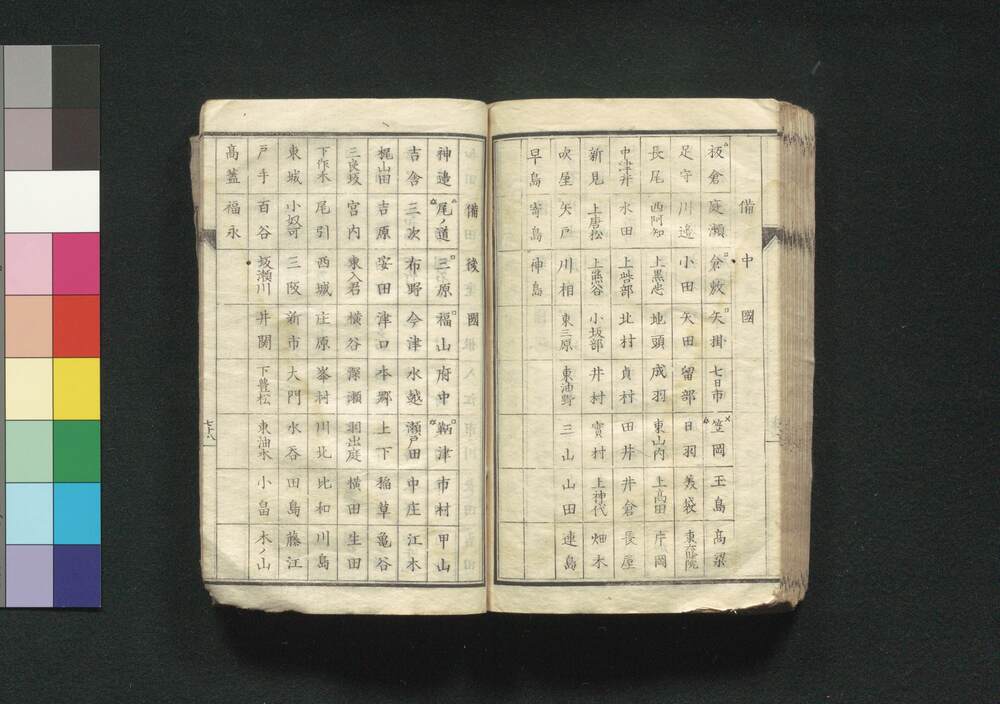 備中國
板倉 庭瀬 倉敷 矢掛 七日市 笠岡 玉島 高梁
足守 川邉 小田 矢田 留部 日羽 美袋 東
長尾 西阿知 上黒忠 地頭 成羽 東山内 上高田 片岡
中津井 水田 上呰部 北村 貞村 田井 井倉 長屋
新見 上唐松 上熊谷 小坂部 井村 實村 上神代 畑木
吹屋 矢戸 川相 東三原 東油野 三山 山田 連島
早島 寄島 神島
備後國
神邉 尾ノ道 三原 福山 府中 鞆津 市村 甲山
吉舎 三次 布野 今津 水越 瀬戸田 中庄 江木
梶山田 吉原 安田 津口 本郷 上下 稲草 亀谷
三良坂 宮内 東入君 横谷 深瀬 羽出庭 横田 生田
下作木 尾引 西城 庄原 峯村 川北 比和 川島
東城 小奴可 三阪 新市 大門 水呑 田島 藤江
戸手 百谷 坂瀬川 井関 下豊松 東油木 小畠 木ノ山
高蓋 福永
七十八